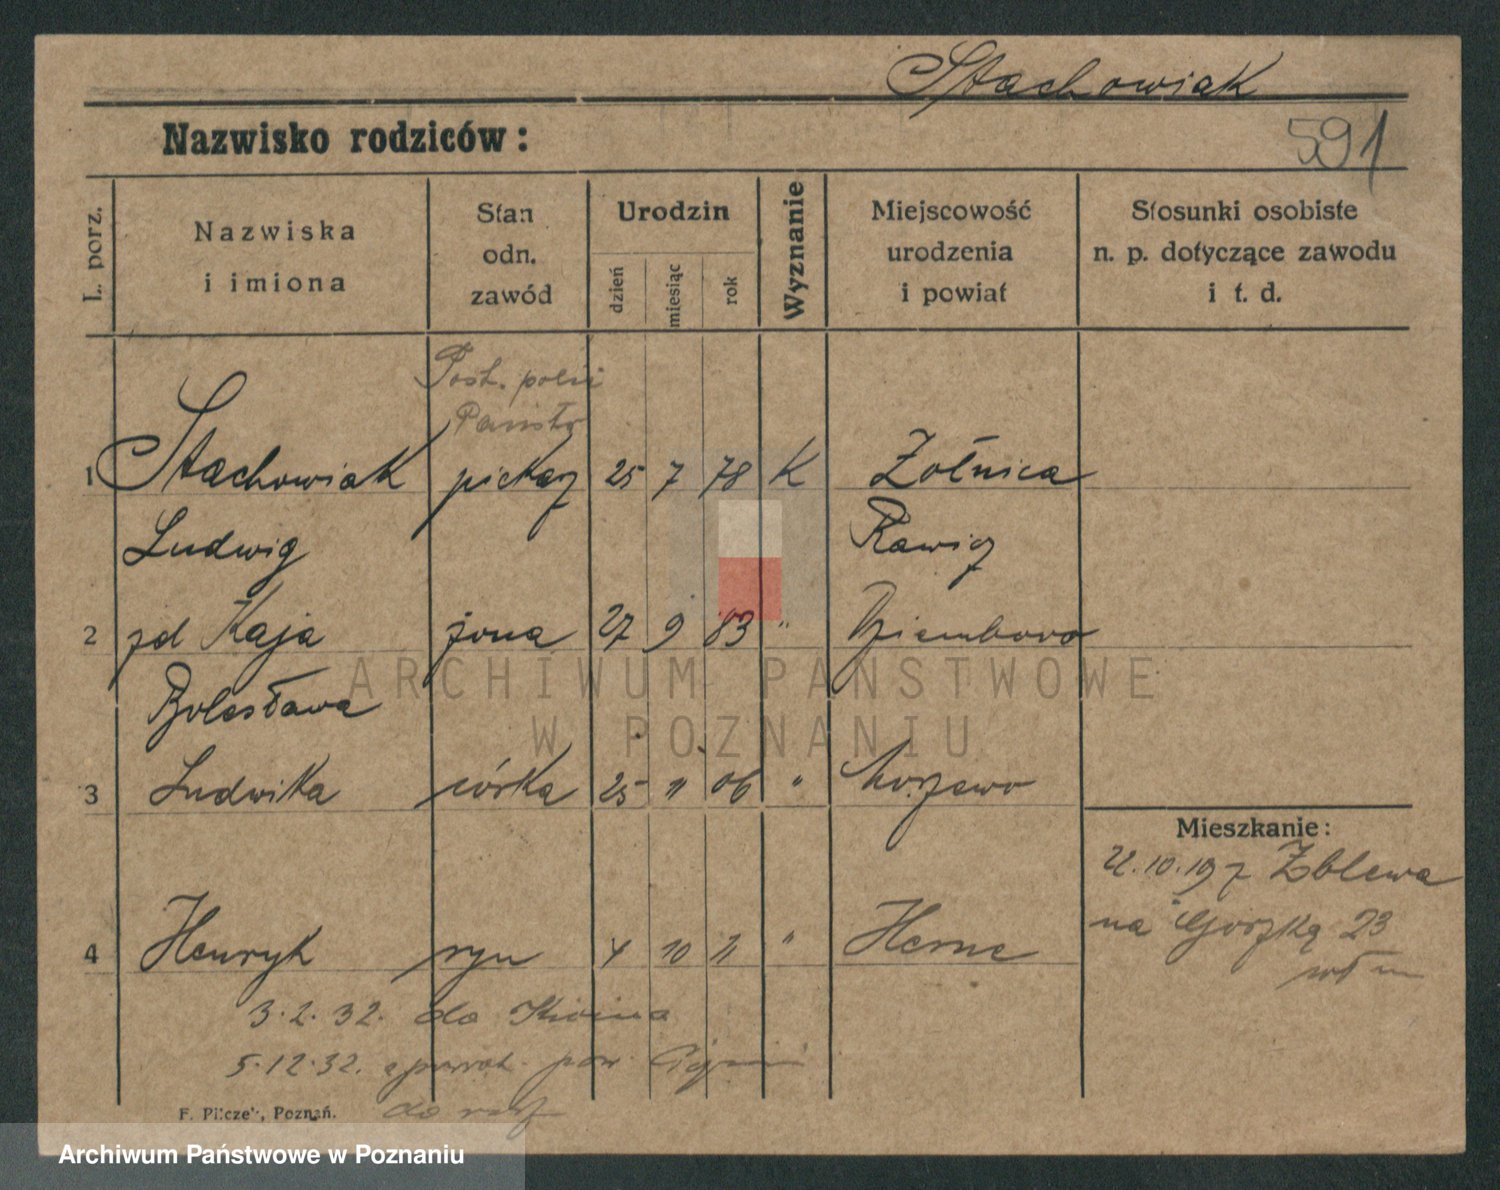 Stachowiak
Nazwisko rodziców:
591
L. porz.
Nazwiska
i imiona
Stan
odn.
zawód
Urodzin
dzień
miesiąc
rok
Wyznanie
Miejscowość
urodzenia
i powiat
Stosunki osobiste
n. p. dotyczące zawodu
i t. d.
Post.
1 Stachowiak piekarz 25 7 78 K Żołnica
Ludwig Rawicz
2 zd Kaja żona 27 9 83 " Dziembowo
Bolesława
3 Ludwika córka 25 11 06 "
Mieszkanie:
22.10.19 z Zblewa
na Górzką 23
4 Henryk syn 4 10 11 " Herne
3.2.32. do
5.12.32.
do
F. Pilczek, Poznań.
ARCHIWUM PAŃSTWOWE
W POZNANIU
Archiwum Państwowe w Poznaniu